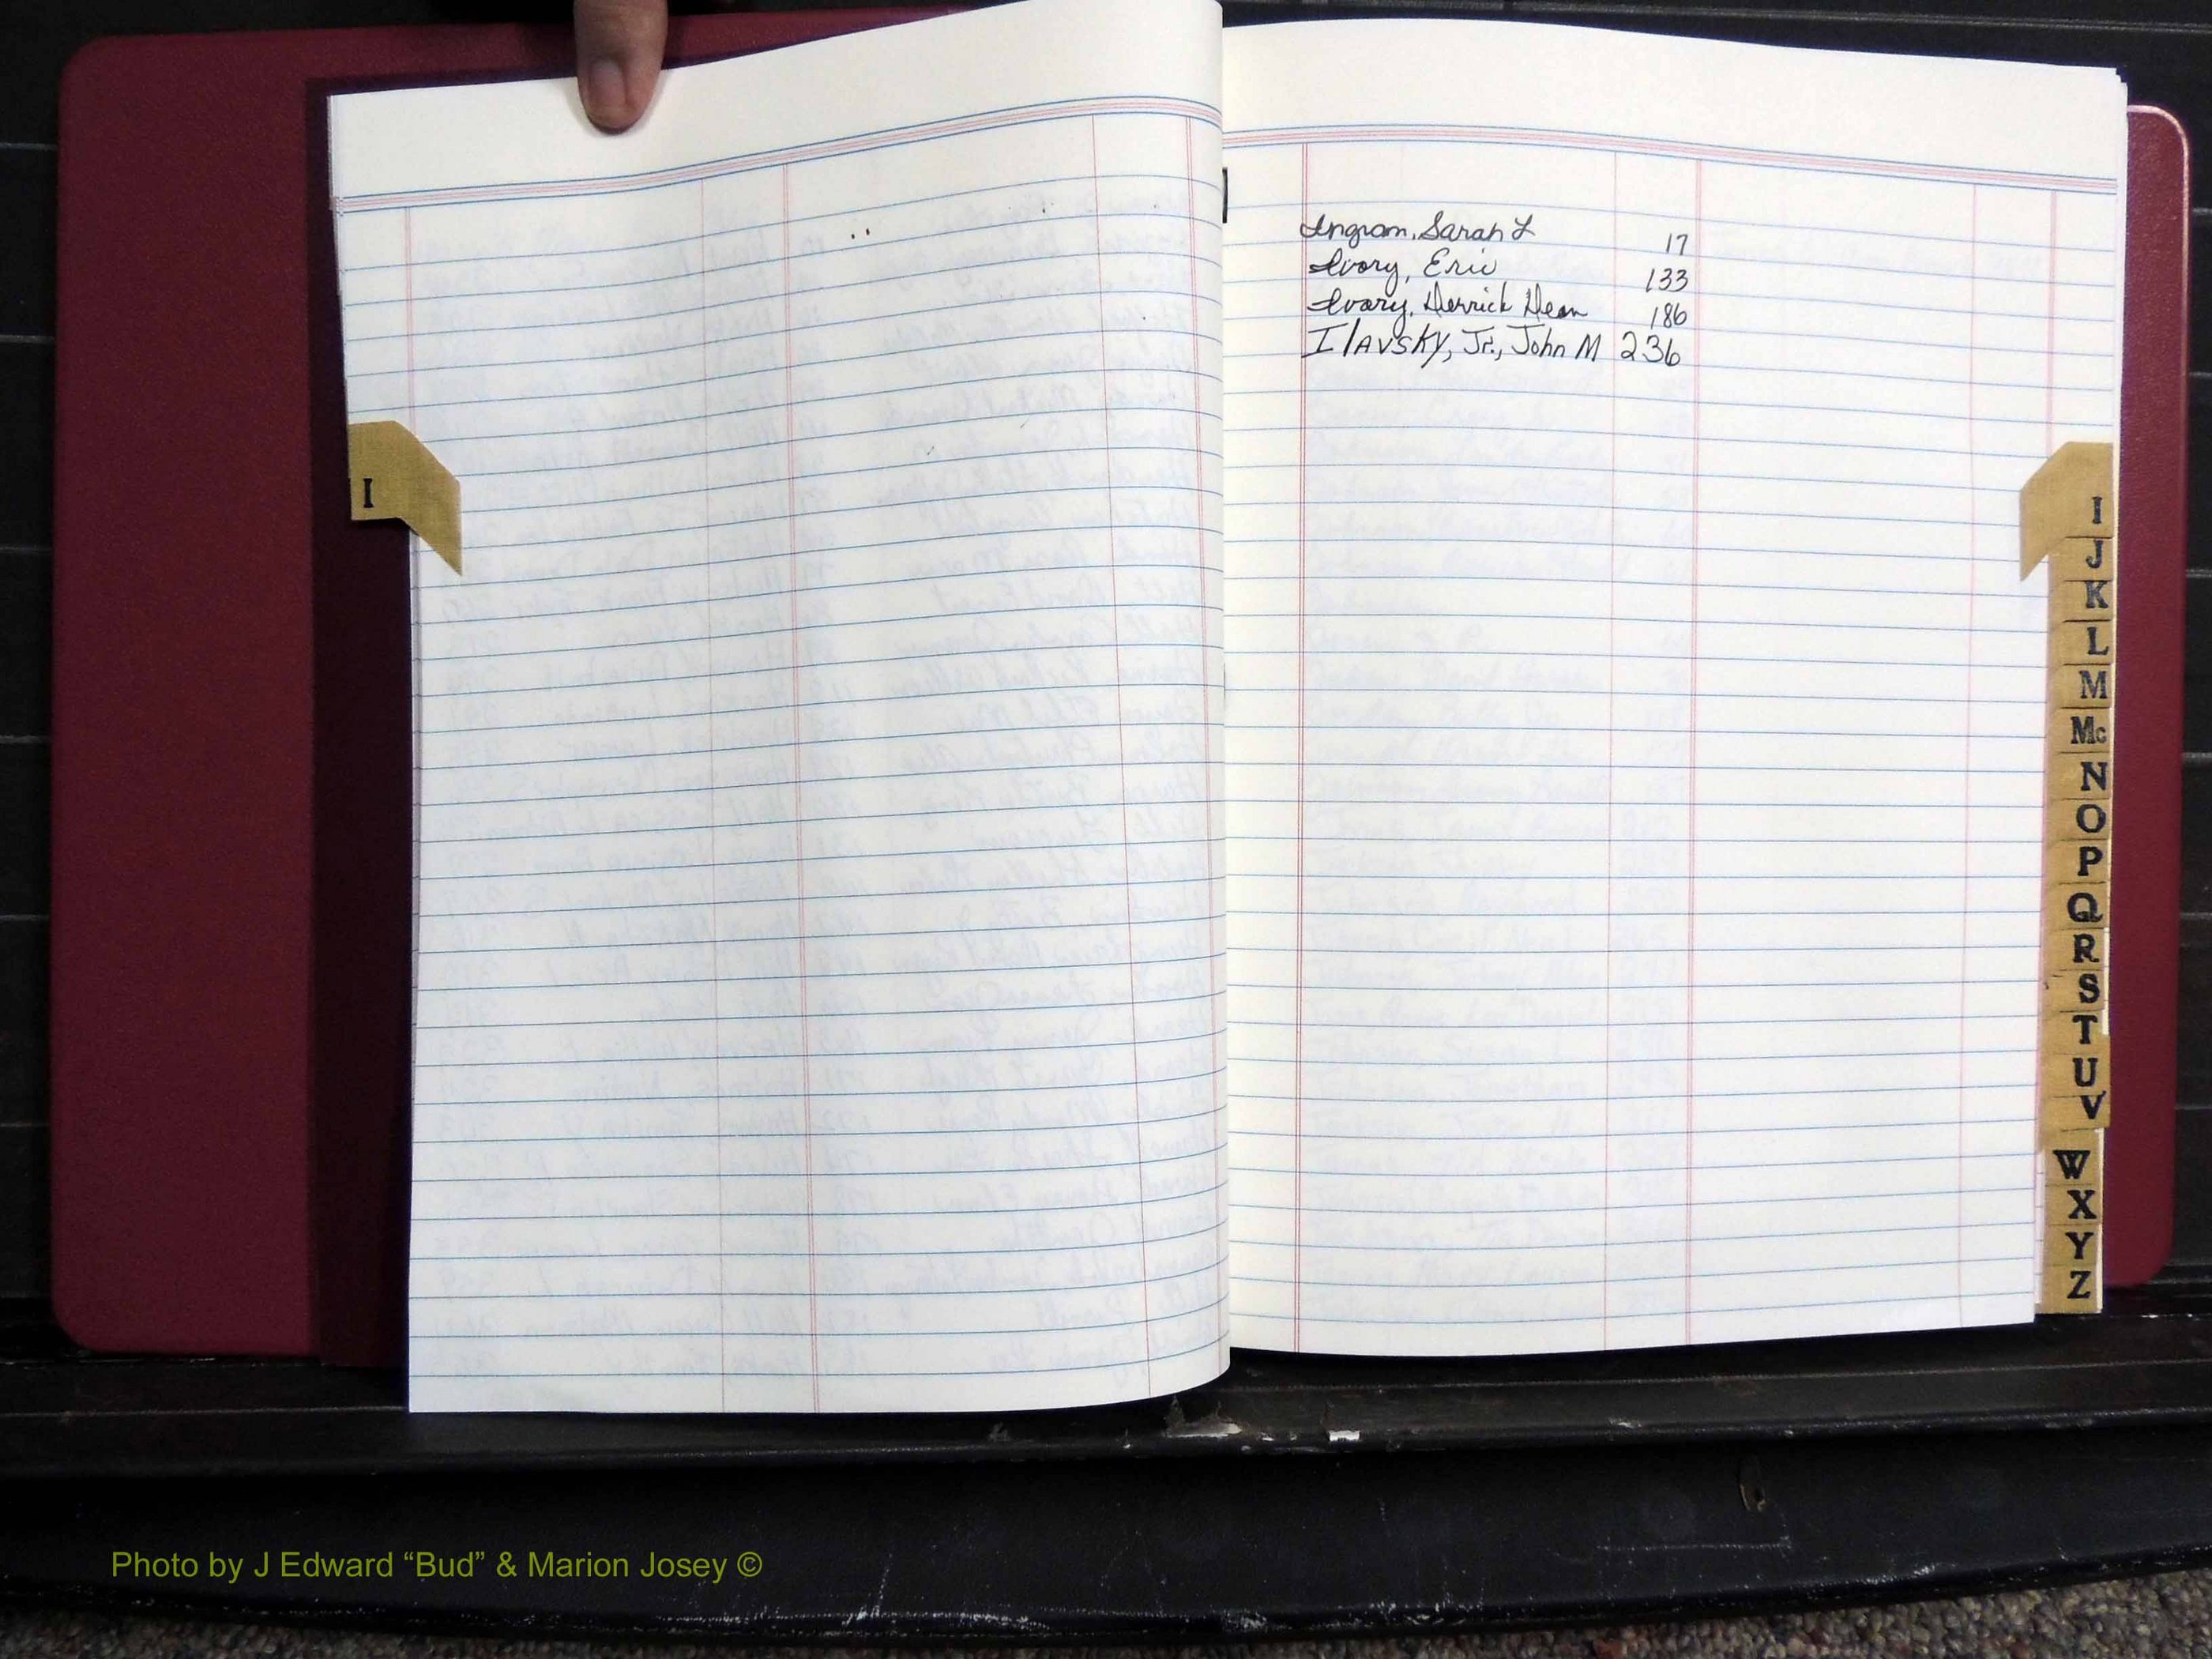 I
Ingram, Sarah L 17
Ivory, Eric 133
Ivory, Derrick Dean 186
Ilavsky, Jr., John M 236
I
J
K
L
M
Mc
N
O
P
Q
R
S
T
U
V
W
X
Y
Z
Photo by J Edward “Bud” & Marion Josey ©